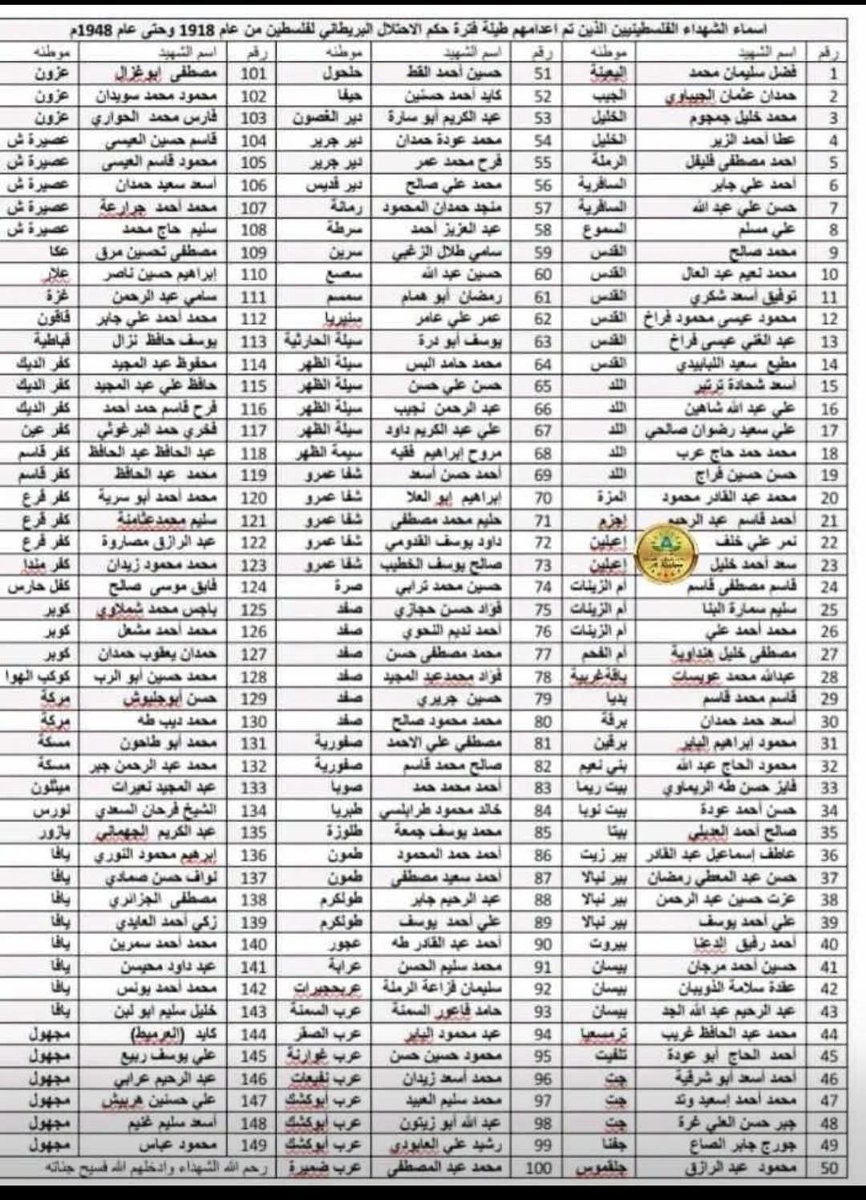 اسماء الشهداء الفلسطينيين الذين تم اعدامهم طيلة فترة حكم الاحتلال البريطاني لفلسطين من عام 1918 وحتى عام 1948م
رقم اسم الشهيد موطنه رقم اسم الشهيد موطنه رقم اسم الشهيد موطنه
1 فضل سليمان محمد البعينة 51 حسين أحمد القط حلحول 101 مصطفى ابوغزال عزون
2 حمدان عثمان الجيباوي الجيب 52 كايد أحمد حسنين حيفا 102 محمود محمد سويدان عزون
3 محمد خليل جمجوم الخليل 53 عبد الكريم أبو سارة دير الغصون 103 فارس محمد الحواري عزون
4 عطا أحمد الزير الخليل 54 محمد عودة حمدان دير جرير 104 قاسم حسين العيسى عصيرة ش
5 احمد مصطفى فليفل الرملة 55 فرح محمد عمر دير جرير 105 محمود قاسم العيسى عصيرة ش
6 أحمد علي جابر السافرية 56 محمد علي صالح دير قديس 106 أسعد سعيد حمدان عصيرة ش
7 حسن علي عبد الله السافرية 57 منجد حمدان المحمود رمانة 107 محمد أحمد جرارعة عصيرة ش
8 علي مسلم السموع 58 عبد العزيز أحمد سرطة 108 سليم حاج محمد عصيرة ش
9 محمد صالح القدس 59 سامي طلال الزغبي سرين 109 مصطفى تحسين مرق عكا
10 محمد نعيم عبد العال القدس 60 حسين عبد الله سعسع 110 إبراهيم حسين ناصر علار
11 توفيق أسعد شكري القدس 61 رمضان أبو همام سمسم 111 سامي عبد الرحمن غزة
12 محمود عيسى محمود فراخ القدس 62 عمر علي عامر سنيريا 112 محمد أحمد علي جابر قاقون
13 عبد الغني عيسى فراخ القدس 63 يوسف أبو درة سيلة الحارثية 113 يوسف حافظ نزال قباطية
14 مطيع سعيد اللبابيدي القدس 64 محمد حامد البس سيلة الظهر 114 محفوظ عبد المجيد كفر الديك
15 أسعد شحادة ترتير اللد 65 حسن علي حسن سيلة الظهر 115 حافظ علي عبد المجيد كفر الديك
16 علي عبد الله شاهين اللد 66 عبد الرحمن نجيب سيلة الظهر 116 فرح قاسم حمد أحمد كفر الديك
17 علي سعيد رضوان صالحي اللد 67 علي عبد الكريم داود سيلة الظهر 117 فخري حمد البرغوثي كفر عين
18 محمد حمد حاج عرب اللد 68 مروح إبراهيم فقيه سيمة الظهر 118 عبد الحافظ عبد الحافظ كفر قاسم
19 حسن حسين فراج اللد 69 أحمد حسن أسعد شفا عمرو 119 محمد عبد الحافظ كفر قاسم
20 محمد عبد القادر محمود المزة 70 إبراهيم ابو العلا شفا عمرو 120 محمد أحمد أبو سرية كفر قرع
21 أحمد قاسم عبد الرحيم إجزم 71 حليم محمد مصطفى شفا عمرو 121 سليم محمدعثامنة كفر قرع
22 نمر علي خلف إعبلين 72 داود يوسف القدومي شفا عمرو 122 عبد الرازق مصاروة كفر قرع
23 سعد أحمد خليل إعبلين 73 صالح يوسف الخطيب شفا عمرو 123 محمد محمود زيدان كفر مندا
24 قاسم مصطفى قاسم أم الزينات 74 حسين محمد ترابي صرة 124 فايق موسى صالح كفل حارس
25 سليم سمارة البنا أم الزينات 75 فؤاد حسن حجازي صفد 125 ياجس محمد شملاوي كوبر
26 محمد أحمد علي أم الزينات 76 أحمد نديم النحوي صفد 126 محمد أحمد مشعل كوبر
27 مصطفى خليل هنداوية أم الفحم 77 محمد مصطفى حسن صفد 127 حمدان يعقوب حمدان كوبر
28 عبدالله محمد عويسات باقةغربية 78 فؤاد محمدعبد المجيد صفد 128 محمد حسين أبو الرب كوكب الهوا
29 قاسم محمد قاسم بديا 79 حسين جريري صفد 129 حسن ابوحليوش مركة
30 أسعد حمد حمدان برقة 80 محمد محمود صالح صفد 130 محمد ديب طه مركة
31 محمود إبراهيم الباير برقين 81 مصطفى علي الاحمد صفورية 131 محمد أبو طاحون مسكة
32 محمود الحاج عبد الله بني نعيم 82 صالح محمد قاسم صفورية 132 محمد عبد الرحمن جبر مسكة
33 فايز حسن طه الريماوي بيت ريما 83 أحمد محمد حمد صوبا 133 عبد المجيد نعيرات ميثلون
34 حسن أحمد عودة بيت نوبا 84 خالد محمود طرابلسي طبريا 134 الشيخ فرحان السعدي نورس
35 صالح أحمد العديلي بيتا 85 محمد يوسف جمعة طلوزة 135 عبد الكريم الجهماني يازور
36 عاطف إسماعيل عبد القادر بير زيت 86 أحمد حمد المحمود طمون 136 إبرهيم محمود النوري يافا
37 حسن عبد المعطي رمضان بير نبالا 87 أحمد سعيد مصطفى طمون 137 نواف حسن صمادي يافا
38 عزت حسين عبد الرحمن بير نبالا 88 عبد الرحيم جابر طولكرم 138 مصطفى الجزائري يافا
39 علي أحمد يوسف بير نبالا 89 علي أحمد يوسف طولكرم 139 زكي أحمد العايدي يافا
40 أحمد رفيق الدعنا بيروت 90 أحمد عبد القادر طه عجور 140 محمد أحمد سمرين يافا
41 حسين أحمد مرجان بيسان 91 محمد سليم الحسن عرابة 141 عبد داود محيسن يافا
42 عقدة سلامة الذويبان بيسان 92 سليمان قزاعة الرملة عربحجيرات 142 محمد أحمد يونس يافا
43 عبد الرحيم عبد الله الجد بيسان 93 حامد فاعور السمنة عرب السمنة 143 خليل سليم ابو لبن يافا
44 محمد عبد الحافظ غريب ترمسعيا 94 عبد محمود الباير عرب الصقر 144 كايد (العرميط) مجهول
45 أحمد الحاج أبو عودة تلفيت 95 محمود حسين حسن عرب غوارنة 145 علي يوسف ربيع مجهول
46 أحمد أسعد أبو شرقية جت 96 محمد أسعد زيدان عرب نفيعات 146 عبد الرحيم عرابي مجهول
47 محمد أحمد إسعيد وتد جت 97 محمد سليم العبيد عرب أبوكشك 147 علي حسنين هربيش مجهول
48 جبر حسن العلي غرة جت 98 عبد الله أبو زيتون عرب أبوكشك 148 أسعد سليم غنيم مجهول
49 جورج جابر الصاع جفنا 99 رشيد علي العابودي عرب أبوكشك 149 محمود عباس مجهول
50 محمود عبد الرازق جلقموس 100 محمد عبد المصطفى عرب ضميرة رحم الله الشهداء وادخلهم الله فسيح جناته